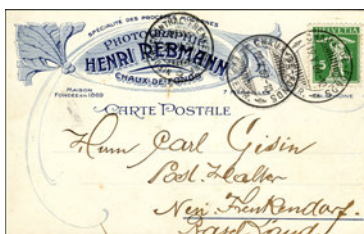 SPÉCIALITÉ DES PROCÉDÉS
PHOTOGRAPHIE
HENRI REBMANN
CHAUX-DE-FONDS
MAISON
FONDÉE EN 1889
7 MÉDAILLES
TÉLÉPHONE
5
CARTE POSTALE
Herrn Carl Gisin
Post-Halter
Neu-Frenkendorf
Basel Land